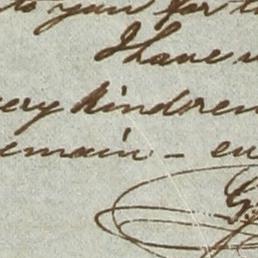 to you for t
I have
ery kindren
emain – eu
G